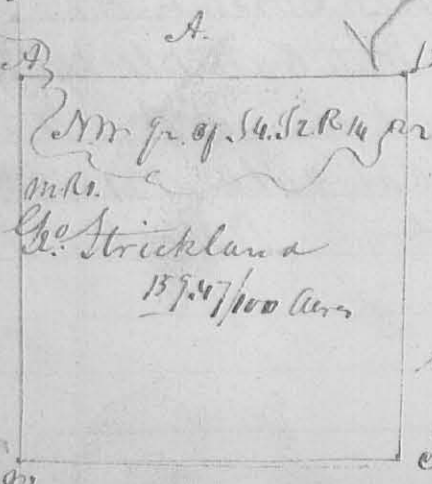 A.
A
N.W. qr. of S4. S2 R 14
Geo. Strickland
159.47/100 Acres